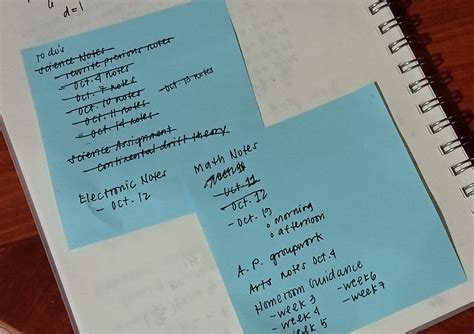 d=1
TO do's
Science Notes
- rewrite previous notes
- Oct. 4 notes
- Oct. 7 notes
- Oct. 10 notes - Oct. 13 notes
- Oct. 11 notes
- Oct. 14 notes
Science Assignment
- continental drift theory
Electronic Notes
- Oct. 12
Math Notes
- Oct. 11
- Oct. 12
- Oct. 19
o morning
o afternoon
A.P. groupwork
Arts notes Oct. 4
Homeroom Guidance
- week 3 - week 6
- week 4 - week 7
- week 5